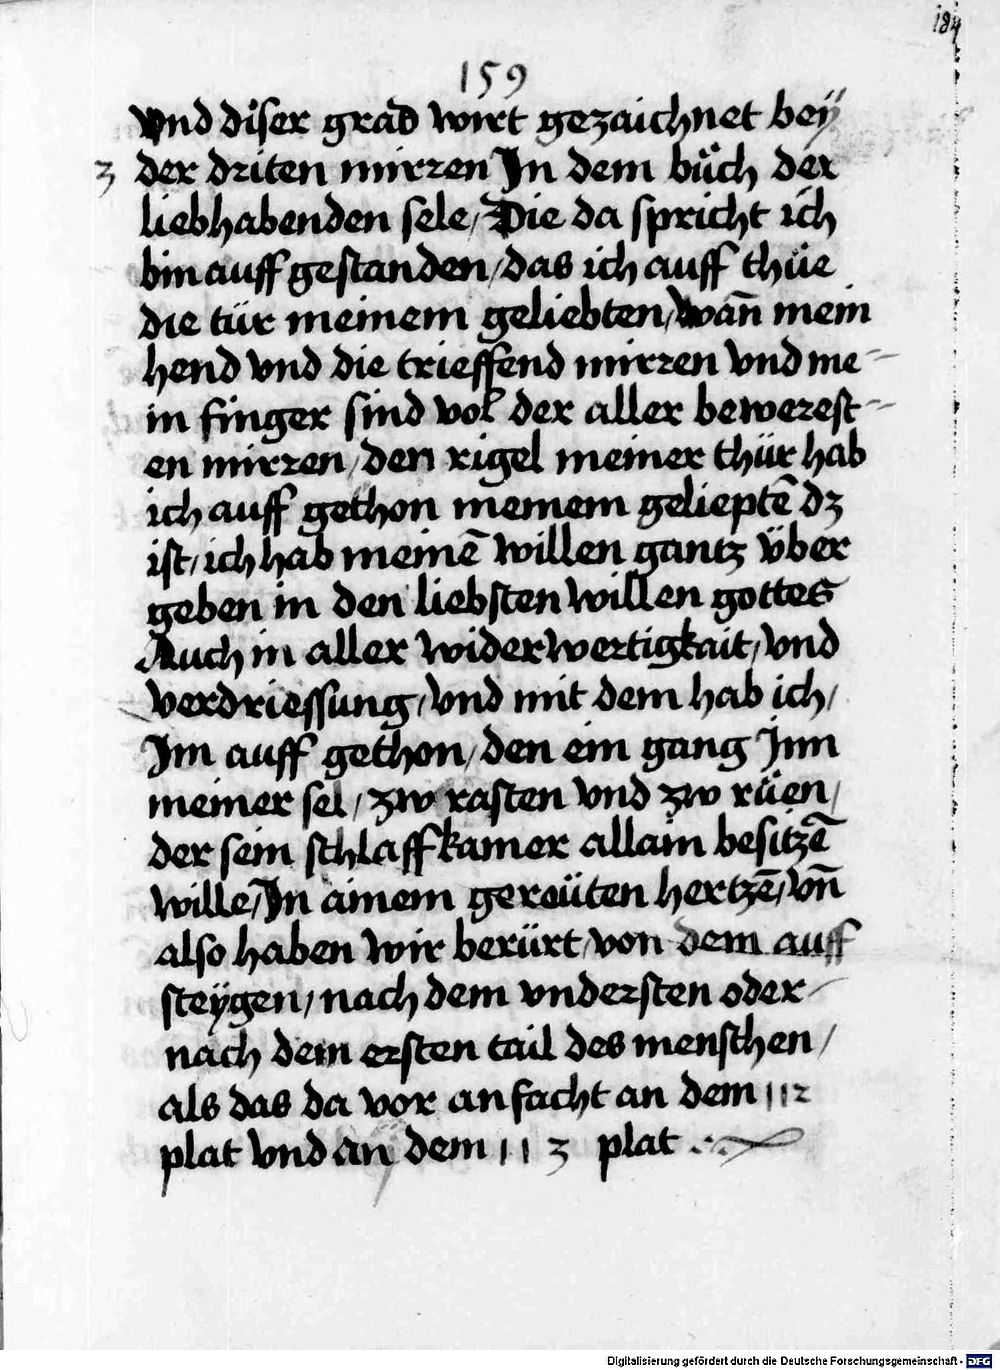 184
159
Vnd diser grad wirt gezaichnet bey
3 der driten mirren Jn dem bůch der
liebhabenden sele/ Die da spricht ich
bin auff gestanden/ das ich auff thüe
die tür meinem geliebten/ wan̄ mein
hend vnd die trieffend mirren vnd me-
in finger sind vol der aller bewerest-
en mirren/ den rigel meiner thür hab
ich auff gethon meinem gelieptē dz
ist/ ich hab meinē willen gantz über
geben in den liebsten willen gottes
Auch in aller widerwertigkait/ vnd
verdriessung/ vnd mit dem hab ich/
Jm auff gethon/ den ein gang Jnn
meiner sel/ zw rasten vnd zw rüen/
der sein schlaffkamer allain besitzē
wille/ Jn ainem gereüten hertzē/ vn̄
also haben wir berürt/ von dem auff
steÿgen/ nach dem vndersten oder
nach dem ersten tail des menschen/
als das da vor anfacht an dem 112
plat vnd an dem 113 plat
Digitalisierung gefördert durch die Deutsche Forschungsgemeinschaft - DFG